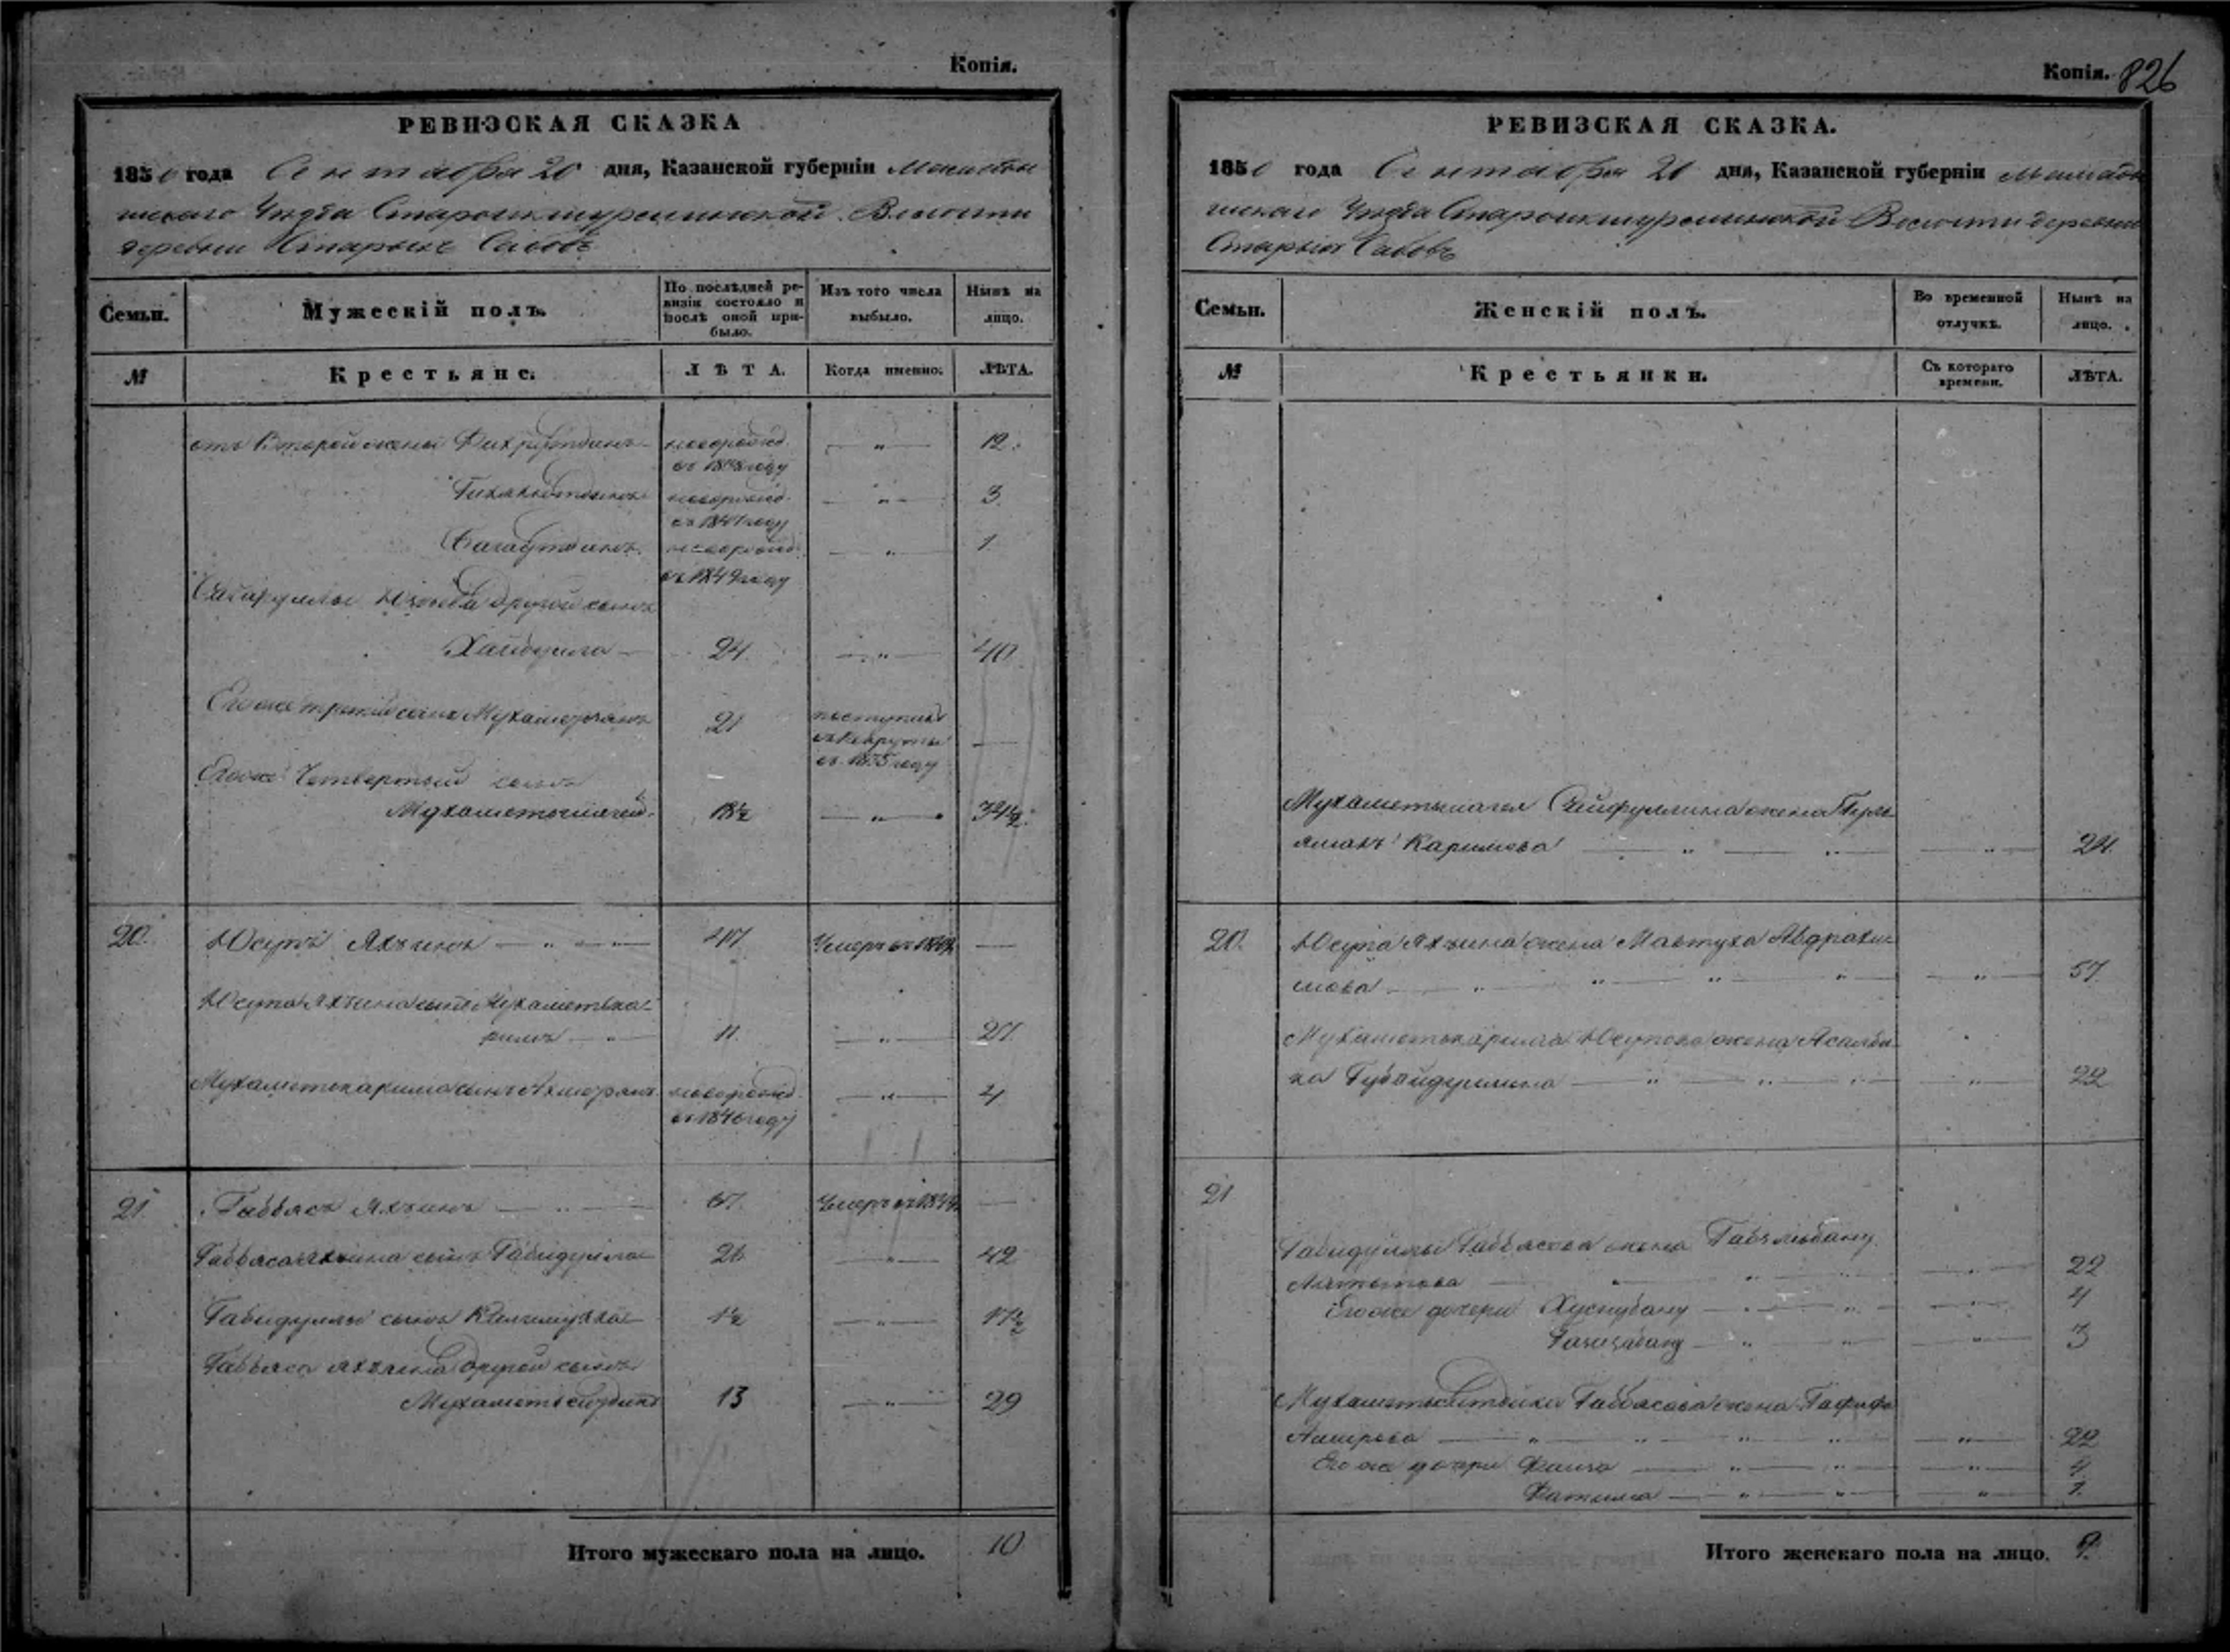 Копія.
РЕВИЗСКАЯ СКАЗКА
1850 года Сентября 20 дня, Казанской губерніи Мамадыш
скаго Уѣзда Староикшурминской Волости
деревни Старыхъ Сабовъ
Семьи.
Мужескій полъ.
По послѣдней ре-
визіи состояло и
послѣ оной при-
было.
Изъ того числа
выбыло.
Нынѣ на
лицо.
№
Крестьяне.
ЛѢТА.
Когда именно.
ЛѢТА.
отъ Второй жены Фахрутдинъ новорожд. — „ — 12.
въ 1838 году
новорожд. — „ — 3
въ 1847 году
новорожд. — „ — 1
въ 1849 году
другой сынъ
Хайбулла — 24. — „ — 40
Его же третій сынъ Мухамедзянъ 21 поступилъ —
въ рекруты
въ 1835 году
Его же Четвертый сынъ
18½ — „ — 34½.
20. Юсупъ Яхъинъ — „ — 47. Умеръ въ —
Юсупа Яхъина сынъ Мухаметька-
римъ — „ 11. — „ — 27.
Мухаметькарима сынъ новорожд. — „ — 4
въ 1846 году
21. Габбасъ Яхъинъ — „ — 67. Умеръ въ —
Габбаса Яхъина сынъ Габидулла 26 — „ — 42
Габидуллы сынъ 1½ — „ — 17½
Габбаса Яхъина другой сынъ
13 — „ — 29
Итого мужескаго пола на лицо. 10
Копія. 826
РЕВИЗСКАЯ СКАЗКА.
1850 года Сентября 20 дня, Казанской губерніи Мамады
шскаго Уѣзда Староикшурминской Волости деревни
Старыхъ Сабовъ
Семьи.
Женскій полъ.
Во временной
отлучкѣ.
Нынѣ на
лицо.
№
Крестьянки.
Съ котораго
времени.
ЛѢТА.
Сайфуллина жена
Каримова — „ — „ — „ — 24.
20. Юсупа Яхъина жена Мавтуха Абдрахи-
мова — „ — „ — „ — „ — „ — 57.
Мухаметькарима Юсупова жена Асалби-
ка Губайдуллина — „ — „ — „ — „ — 22
21
Габидуллы Габбасова жена
— „ — „ — „ — 22
Его же дочери Хуснубану — „ — „ — „ — 4
— „ — „ — „ — 3
Габбасова жена Гафифа
Амирова — „ — „ — „ — „ — „ — 22
Его же дочери Фаиза — „ — „ — „ — 4
Фатима — „ — „ — „ — 1.
Итого женскаго пола на лицо. 9.